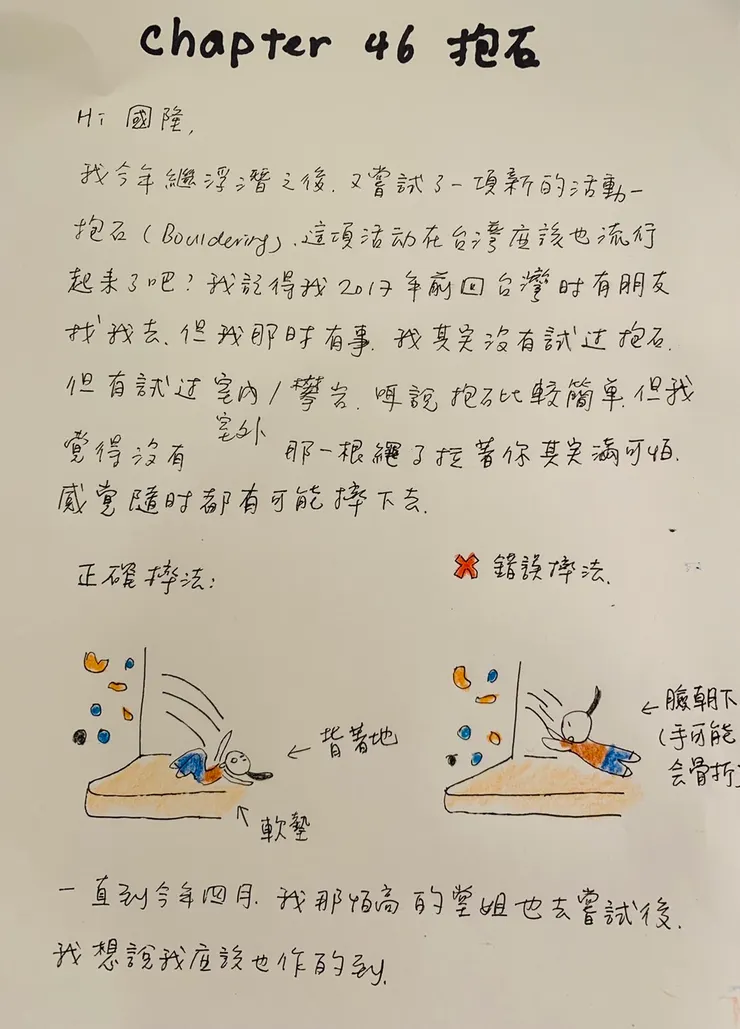 Chapter 46 抱石
Hi 國隆,
我今年繼浮潛之後,又嘗試了一項新的活動—
抱石(Bouldering),這項活动在台灣應該也流行
起來了吧?我記得我2017年前回台灣時有朋友
找我去,但我那时有事,我其实沒有試过抱石,
但有試过室內/攀岩,
室外
說抱石比較簡單,但我
覺得沒有那一根繩子拉著你其实滿可怕,
感覚隨时都有可能摔下去.
正確摔法:
✖ 錯誤摔法.
← 背著地
軟墊
← 臉朝下
(手可能
会骨折)
一直到今年四月,我那怕高的堂姐也去嘗試後,
我想說我應該也作的到.